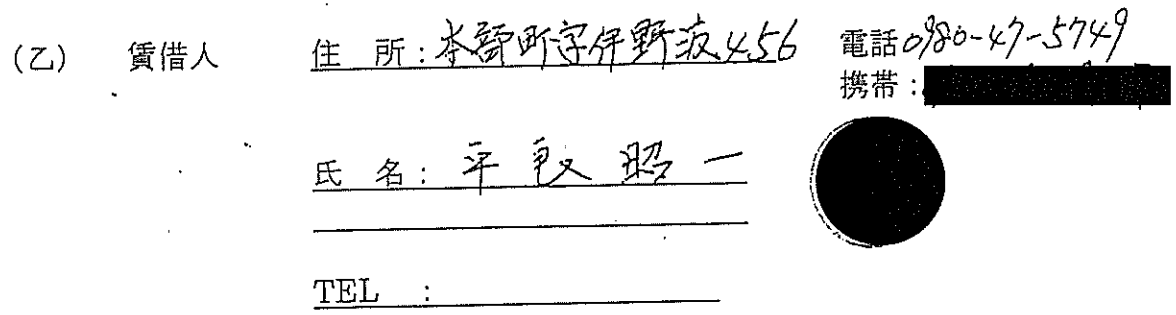 (乙) 賃借人 住 所：本部町字伊野波456 電話0980-47-5749
携帯：
氏 名：平 良 昭 一
TEL ：